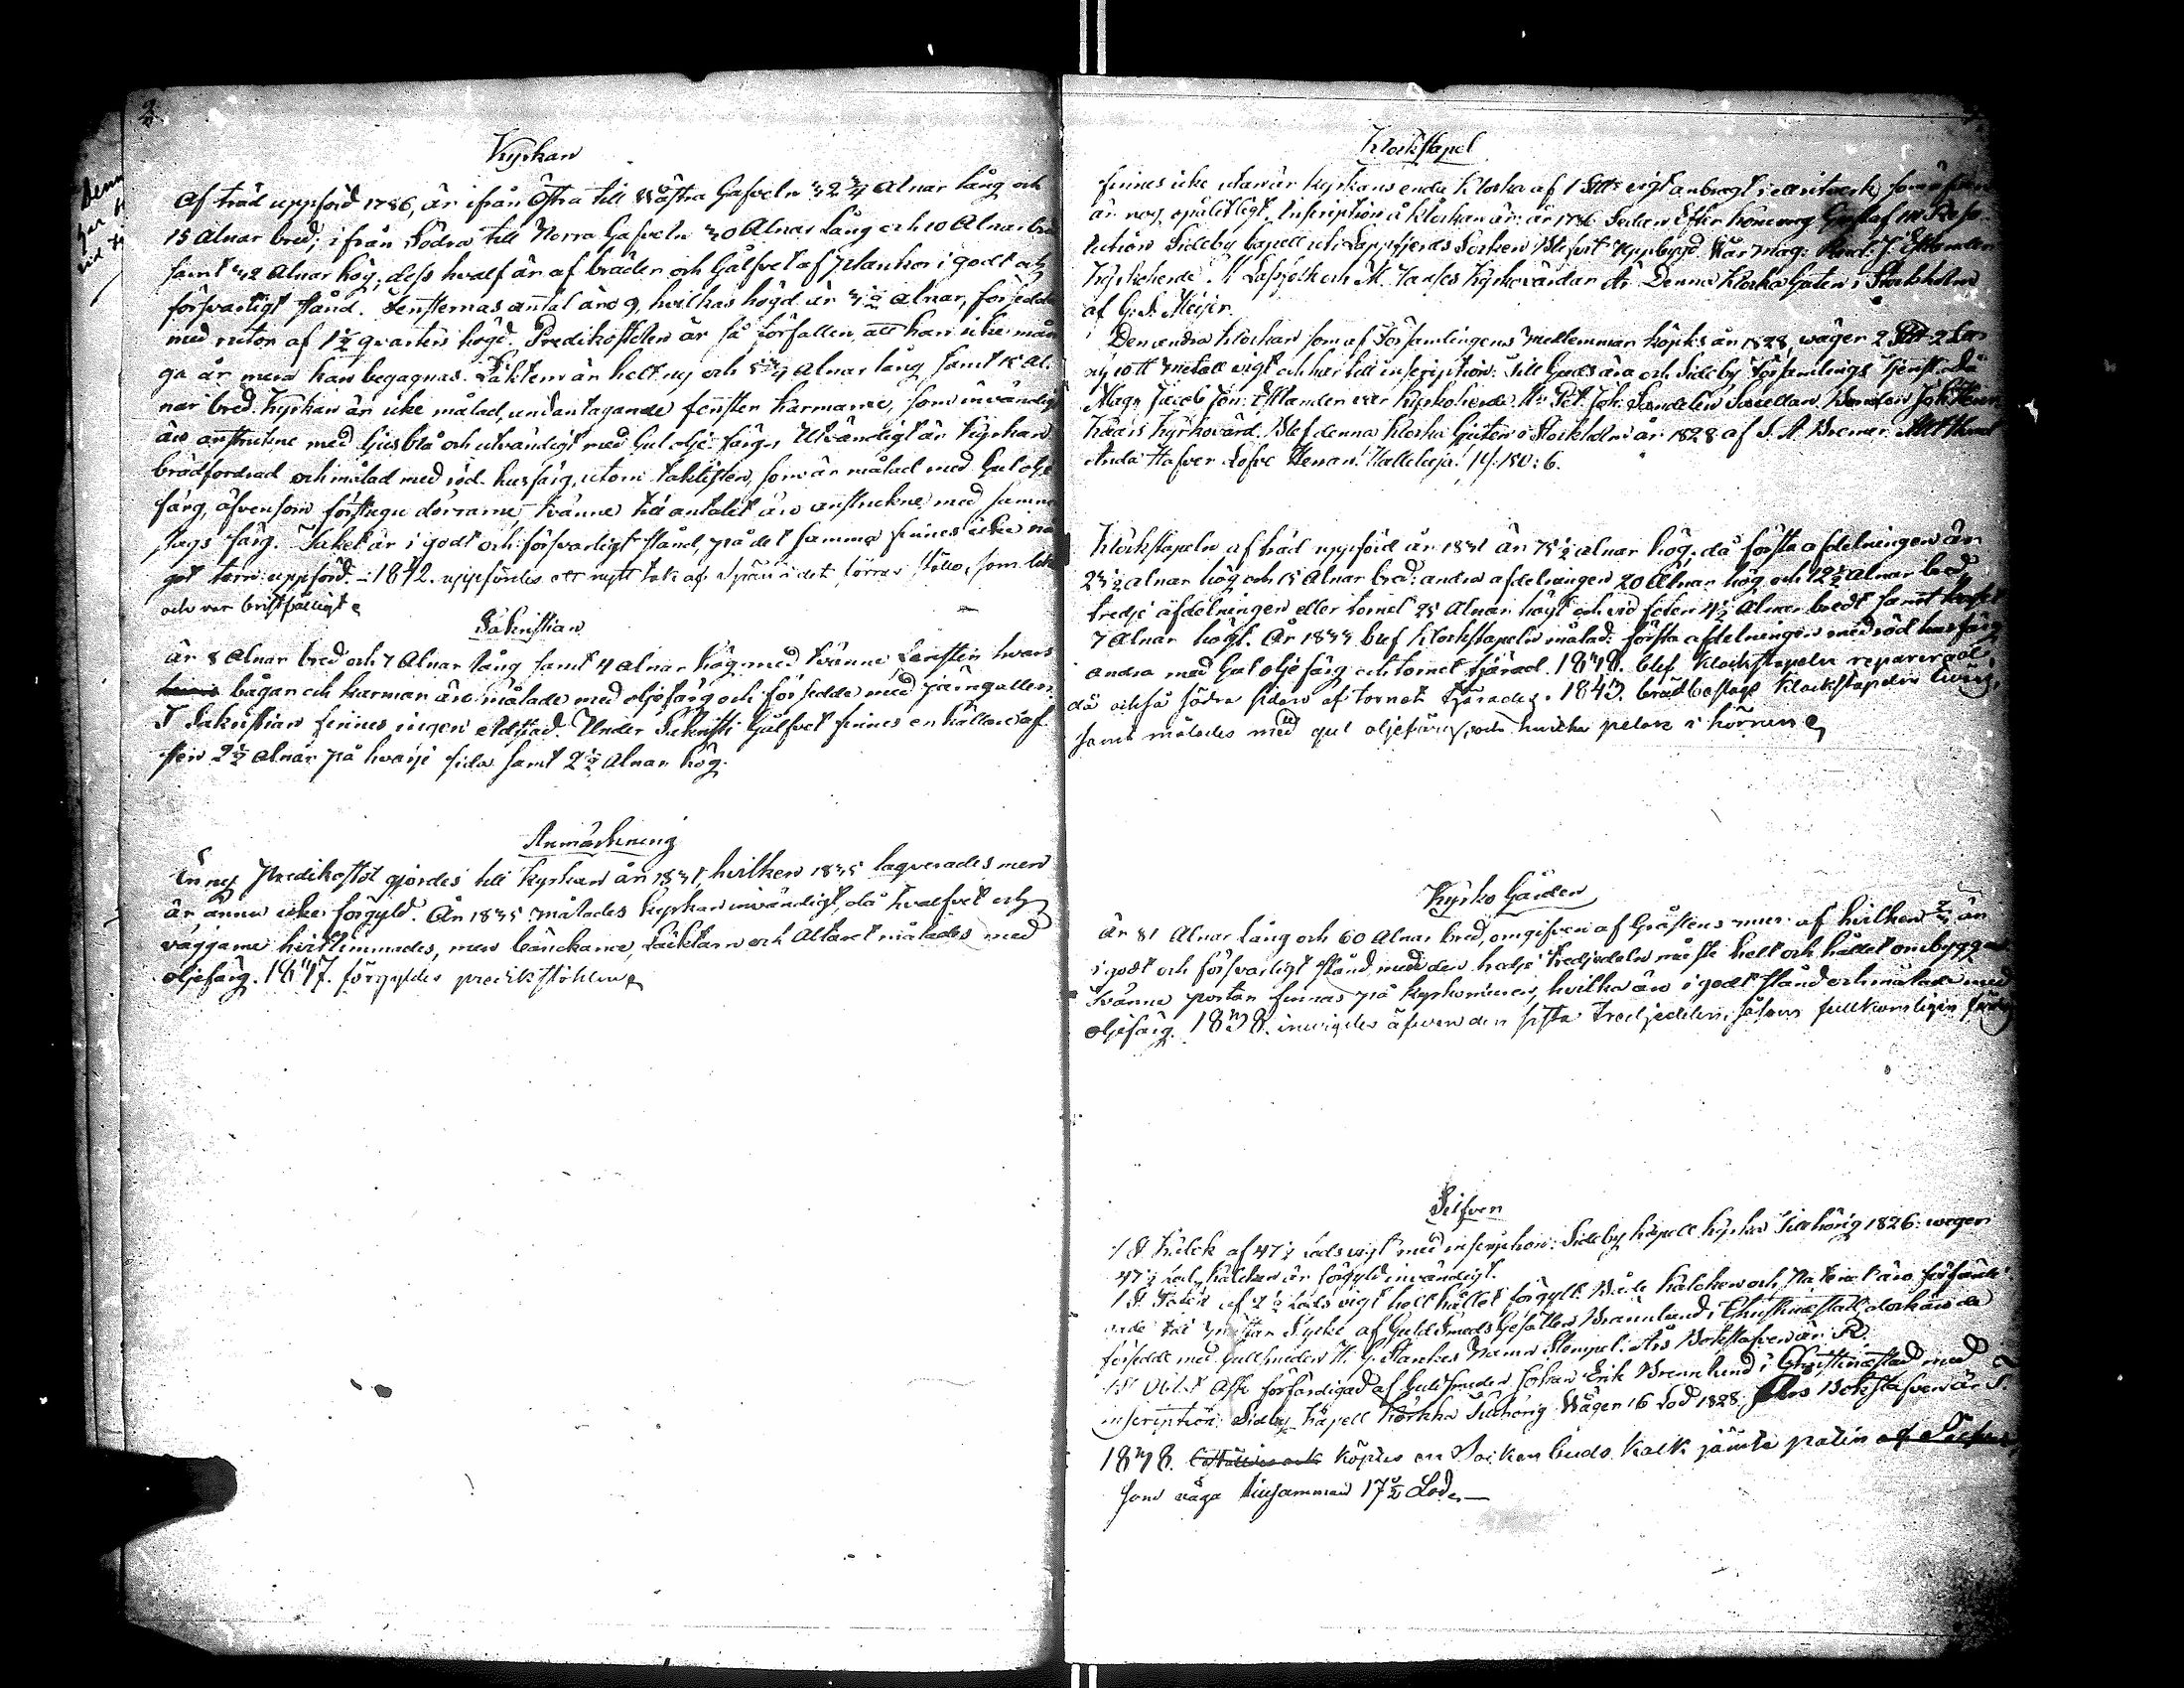 2.
Kyrkan
Af träd uppförd 1786, är ifrån Östra till Wästra Gafveln 32 3/4 Alnar lång och
15 Alnar bred; ifrån Södra till Norra Gafveln 30 Alnar Lång och 10 Alnar bred
samt 32 Alnar hög; dess hvalf är af bräder och Gålfvet af Plankor i godt och
försvarligt stånd. Fenssternas antal äro 9, hvilkas högd är 3 1/2 alnar, försedda
med rutor af 1 1/2 qvarters högd. Predikostolen är så förfallen att han icke mån
ga år mera kan begagnas. Läktern är helt ny och 5 3/4 Alnar lång, samt 15 Al-
nar bred. Kyrkan är icke målad, undantagande fenster karmarne, som invändigt
äro anstrukne med Ljusblå och utvändigt med Gul olje-färg. Utvändigt är Kyrkan
brädfordrad och målad med röd-husfärg, utom taklisten, som är målad med Gul olje
färg, äfvensom förstugu dörrarne, tvänne till antalet äro anstrukne med samma
slags färg. Taket är i godt och försvarligt stånd, på det samma finnes icke nå
got torn uppförd. - 1842. uppfördes ett nytt tak af Spån i det förras ställe, som läkt
och var bristfälligt
Sakristian
är 8 Alnar bred och 7 Alnar lång samt 4 alnar hög med tvänne Fenster hvars
bågar och karmar äro målade med oljefärg och försedda med järngaller.
I Sakristian finnes ingen eldstad. Under Sakristi Gålfvet finnes en källare af
sten 2 1/2 alnar på hvarje sida samt 2 1/2 Alnar hög.
Anmärkning
En ny Predikostol gjordes till Kyrkan år 1831, hvilken 1835 laquerades men
är ännu icke förgyld. År 1835 målades Kyrkan invändigt, då hvalfvet och
väggarne hvitlimmades, men bänckarne, Läcktarn och Altaret målades med
oljefärg. 1847. förgyldes predikstohlen
Klockstapel
finnes icke utan är Kyrkans enda Klocka af 1 vigt anbragt i ett sitverk, som
är nog opålitligt. Inscription å Klockan är: år 1786 Sedan Efter Konung Gustaf III Reso-
lution Sideby Capell uti Lappfjerds Socken Blefvit Uppbygd War Mag:
Kyrkoherde. M Lassfolk och M. Jansfs Kyrkovärdar &c Denna Klocka Guten i Stockholm
af G: S. Meijer.
Den andra Klockan som af Församlingens medlemmar köptes år 1828, wäger 2
metall vigt och har till inscription: Till Guds ära och Sideby Församlings tjenst. Då
Mag: Jacob Jon: Estlander var Kyrkoherde. Mr Pet. Joh. Sandelin Sacellan,
Kyrkovärd. Blef denna klocka Guten i Stockholm år 1828 af S. A. Bremer. Allt Hvad
Anda Hafver Lofve Herran! Halleluja! Ps: 150: 6.
Klockstapeln af träd uppförd år 1831 är 75 1/2 alnar hög, då första afdelningen är
alnar hög och 15 Alnar bred: andra afdelningen 20 Alnar hög och 12 1/2 Alnar bred
tredje afdelningen eller tornet 25 Alnar högt och vid foten 4 1/2 Alnar bredt samt
7 Alnar högt. År 1833 blef Klockstapeln målad: första afdelningen med röd husfärg
andra med Gul olje färg och tornet tjärad. 1838. blef Klockstapeln reparerad
då också södra sidan af tornet tjärades. 1843. brädbeslogs Klockstapeln
samt målades med gul oljefärg, och hwita pelare i hörnen
Kyrko Gården
är 81 Alnar Lång och 60 Alnar bred, omgifven af Gråstens mur af hvilken 2/3 är
i godt och försvarligt stånd, men den tredje tredjedelen måste helt och hållet ombyggas
Tvänne portar finnas på kyrkomuren, hvilka äro i godt stånd och målade med
oljefärg. 1838. invigdes äfwen den sista tredjedelen, såsom fullkomligen färdig
Silfver
1 St Kalck af 47 1/2 Lods vigt med inscription: Sideby Capell Kyrka Tillhörig 1826. weger
47 1/2 Lod, kalcken är förgyld invändigt.
1 St. Paten af 7 1/2 Lods vigt helt hållet förgyllt. Både kalcken och Patenet äro förfärdi-
gade af GuldSmeds Gesällen Brännlund i Christinæstad, dock äro de
försedde med Gullsmeden H. G. Stanckes Namn Stempel. Års Bokstafven är R.
1 St Oblat Ask förfärdigad af Guldsmeden Johan Erik Brennlund i Christinæstad med
inscription: Sideby Kapell Körkka Tillhörig Wäger 16 Lod 1828. Års Bokstafven är T.
1838. köptes en Sockenbuds kalk jämte patén af Silfver
som väga tillsammans 17 1/2 Lod.